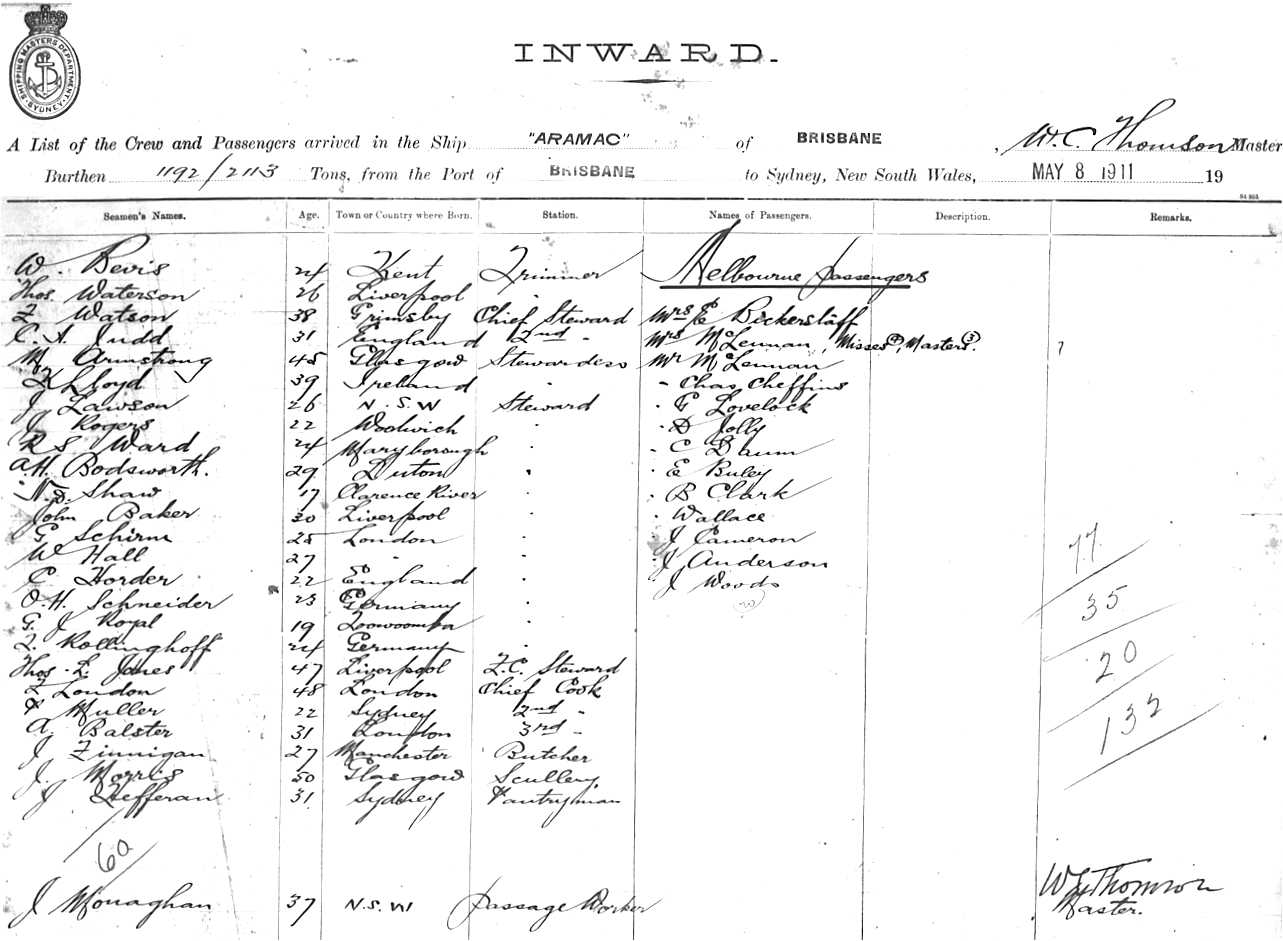 SHIPPING MASTERS DEPARTMENT
SYDNEY
INWARD.
A List of the Crew and Passengers arrived in the Ship "ARAMAC" of BRISBANE, W.C. Thomson Master
Burthen 1192/2113 Tons, from the Port of BRISBANE to Sydney, New South Wales, MAY 8 1911 19
Seamen's Names. Age. Town or Country where Born. Station. Names of Passengers. Description. Remarks.
W. Bevis 24 Kent Trimmer Melbourne passengers
Thos. Waterson 26 Liverpool "
F Watson 38 Grimsby Chief Steward Mrs E Bickerstaff
C. A. Judd 31 England 2nd " Mrs McLennan, Misses (4), Masters (3). 7
M Armstrong 45 Glasgow Stewardess Mr McLennan
K Lloyd 39 Ireland " " Chas Cheffins
J Lawson 26 N.S.W Steward " G Lovelock
J Rogers 22 Woolwich " " D Jolly
R S Ward 24 Maryborough " " C Daum
A.H. Bodsworth. 29 Luton " " E Buley
N.S. Shaw 17 Clarence River " " B Clark
John Baker 30 Liverpool " " Wallace
G Schirm 25 London " " J Cameron
W Hall 27 " " " J Anderson
C Horder 22 England " J Woods
O.H. Schneider 23 Germany "
G. J Royal 19 Toowoomba "
F. Rollinghoff 24 Germany "
Thos. L. Jones 47 Liverpool F.C. Steward
F London 48 London Chief Cook
P Muller 22 Sydney 2nd "
A. Balster 31 London 3rd "
J Finnigan 27 Manchester Butcher
J. Morris 50 Glasgow Scullery
J Hefferan 31 Sydney Pantryman
77
35
20
132
60
J Monaghan 37 N.S.W Passage Worker
W C Thomson
Master.